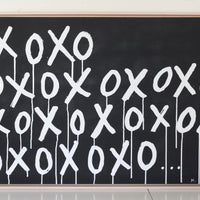 XOXO
OXOX OXOX
XOXOXOX
OXOXOXO...